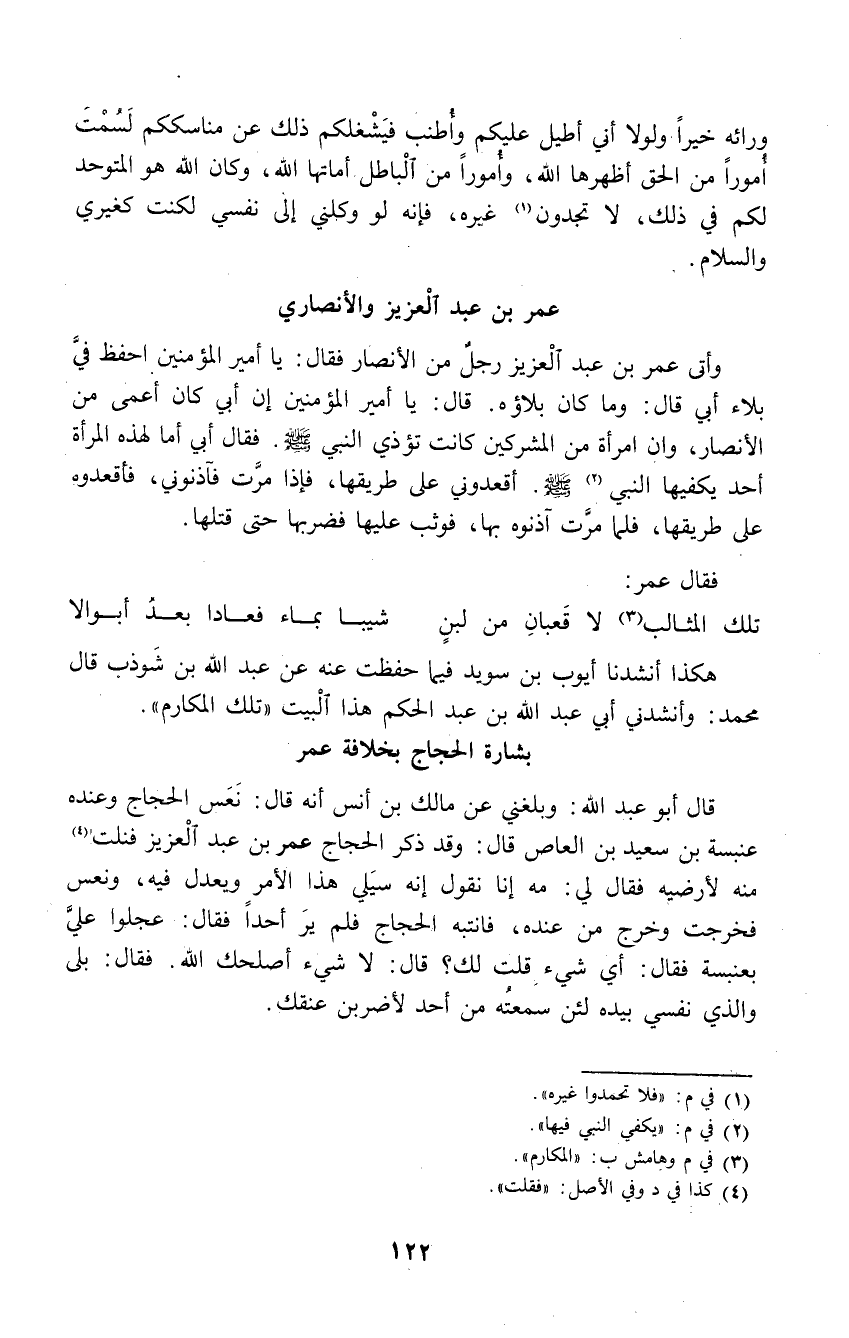 ورائه خيراً ولولا أني أطيل عليكم وأُطنب فيَشْغلكم ذلك عن مناسككم لَسُمْتَ
أُموراً من الحق أظهرها الله، وأُموراً من ٱلْباطل أماتها الله، وكان الله هو المتوحد
لكم في ذلك، لا تجدون(١) غيره، فإنه لو وكلني إلى نفسي لكنت كغيري
والسلام.
عمر بن عبد ٱلْعزيز والأنصاري
وأتى عمر بن عبد ٱلْعزيز رجلٌ من الأنصار فقال: يا أمير المؤمنين احفظ فيَّ
بلاء أبي قال: وما كان بلاؤه. قال: يا أمير المؤمنين إن أبي كان أعمى من
الأنصار، وان امرأة من المشركين كانت تؤذي النبي ﷺ. فقال أبي أما لهذه المرأة
أحد يكفيها النبي (٢) ﷺ. أقعدوني على طريقها، فإذا مرَّت فآذنوني، فأقعدوه
على طريقها، فلما مرَّت آذنوه بها، فوثب عليها فضربها حتى قتلها.
فقال عمر:
تلك المثالب(٣) لا قَعبانِ من لبنٍ شيبا بماء فعادا بعدُ أبوالا
هكذا أنشدنا أيوب بن سويد فيما حفظت عنه عن عبد الله بن شَوذب قال
محمد: وأنشدني أبي عبد الله بن عبد الحكم هذا ٱلْبيت «تلك المكارم».
بشارة الحجاج بخلافة عمر
قال أبو عبد الله: وبلغني عن مالك بن أنس أنه قال: نَعَس الحجاج وعنده
عنبسة بن سعيد بن العاص قال: وقد ذكر الحجاج عمر بن عبد ٱلْعزيز فنلت(٤)
منه لأرضيه فقال لي: مه إنا نقول إنه سيَلي هذا الأمر ويعدل فيه، ونعس
فخرجت وخرج من عنده، فانتبه الحجاج فلم يرَ أحداً فقال: عجلوا عليَّ
بعنبسة فقال: أي شيء قلت لك؟ قال: لا شيء أصلحك الله. فقال: بلى
والذي نفسي بيده لئن سمعتُه من أحد لأضربن عنقك.
(١) في م: «فلا تحمدوا غيره».
(٢) في م: «يكفي النبي فيها».
(٣) في م وهامش ب: «المكارم».
(٤) كذا في د وفي الأصل: «فقلت».
١٢٢